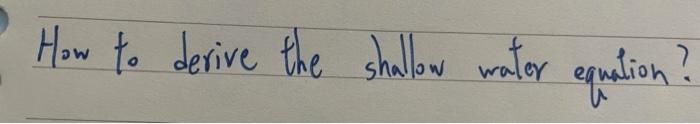 How to derive the shallow water equation?